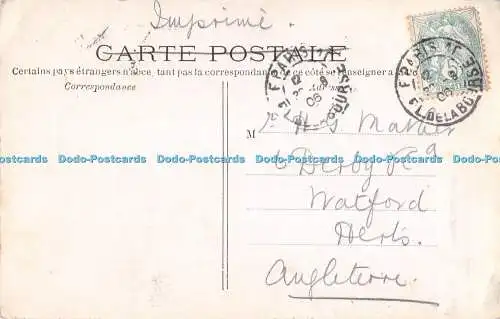 Imprimé.
CARTE POSTALE
Certains pays étrangers n'acceptant pas la correspondance de ce côté se renseigner à la Poste
Correspondance
Adresse
PARIS
BOURSE
06
PARIS
PL. DE LA BOURSE
06
M
H S
6 Derby Rd
Watford
Herts.
Angleterre.
Dodo-Postcards Dodo-Postcards Dodo-Postcards Dodo-Postcards Dodo-Postcards Dodo-Postcards